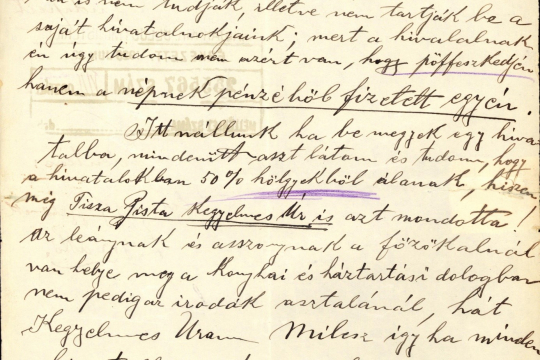 is nem tudják, illetve nem tartják be a
saját hivatalnokjaink; mert a hivatalnak
én úgy tudom nem azért van, hogy pöffeszkedjén
hanem a népnek pénzéböl fizetett egyén.
Itt nállunk ha be megyek egy hiva-
talba, mindenütt aszt látom és tudom, hogy
a hivatalokban 50% hölgyekböl álanak, hiszen
míg Tisza Pista Kegyelmes Úr is azt mondotta!
Az leánynak és asszonynak a fözökalnál
van helye meg a Konyhai és háztartási dologban
nem pedig az irodák asztalánál, hát
Kegyelmes Uram Milesz így ha minden